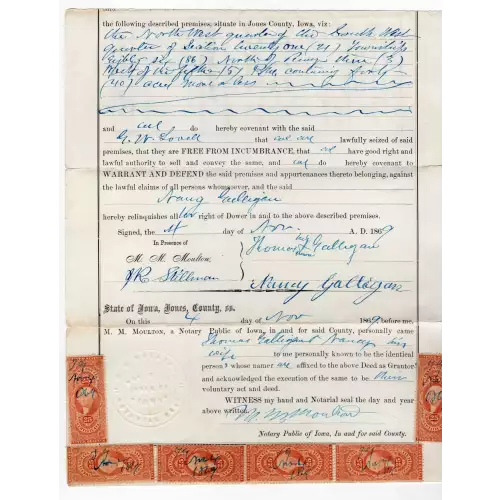 the following described premises, situate in Jones County, Iowa, viz:
the North West quarter of the South West
quarter of Section twenty one (21) Township
Eighty Six (86) North of Range three (3)
West of the fifth (5) P.M. containing forty
(40) acres more or less
and we do hereby covenant with the said
G. W. Lovell that we are lawfully seized of said
premises, that they are FREE FROM INCUMBRANCE, that we have good right and
lawful authority to sell and convey the same, and we do hereby covenant to
WARRANT AND DEFEND the said premises and appurtenances thereto belonging, against
the lawful claims of all persons whomsoever, and the said
Nancy Galligan
hereby relinquishes all her right of Dower in and to the above described premises.
Signed, the 4 day of Nov. A. D. 1869
In Presence of
Thomas his Galligan
M. M. Moulton,
J R Stillman
Nancy Galligan
State of Iowa, Jones, County, ss.
On this 4 day of Nov 1869 before me,
M. M. MOULTON, a Notary Public of Iowa, in and for said County, personally came
Thomas Galligan & Nancy his
wife to me personally known to be the identical
person s whose name are affixed to the above Deed as Grantors
and acknowledged the execution of the same to be their
voluntary act and deed.
WITNESS my hand and Notarial seal the day and year
above written.
M M Moulton
Notary Public of Iowa, In and for said County.